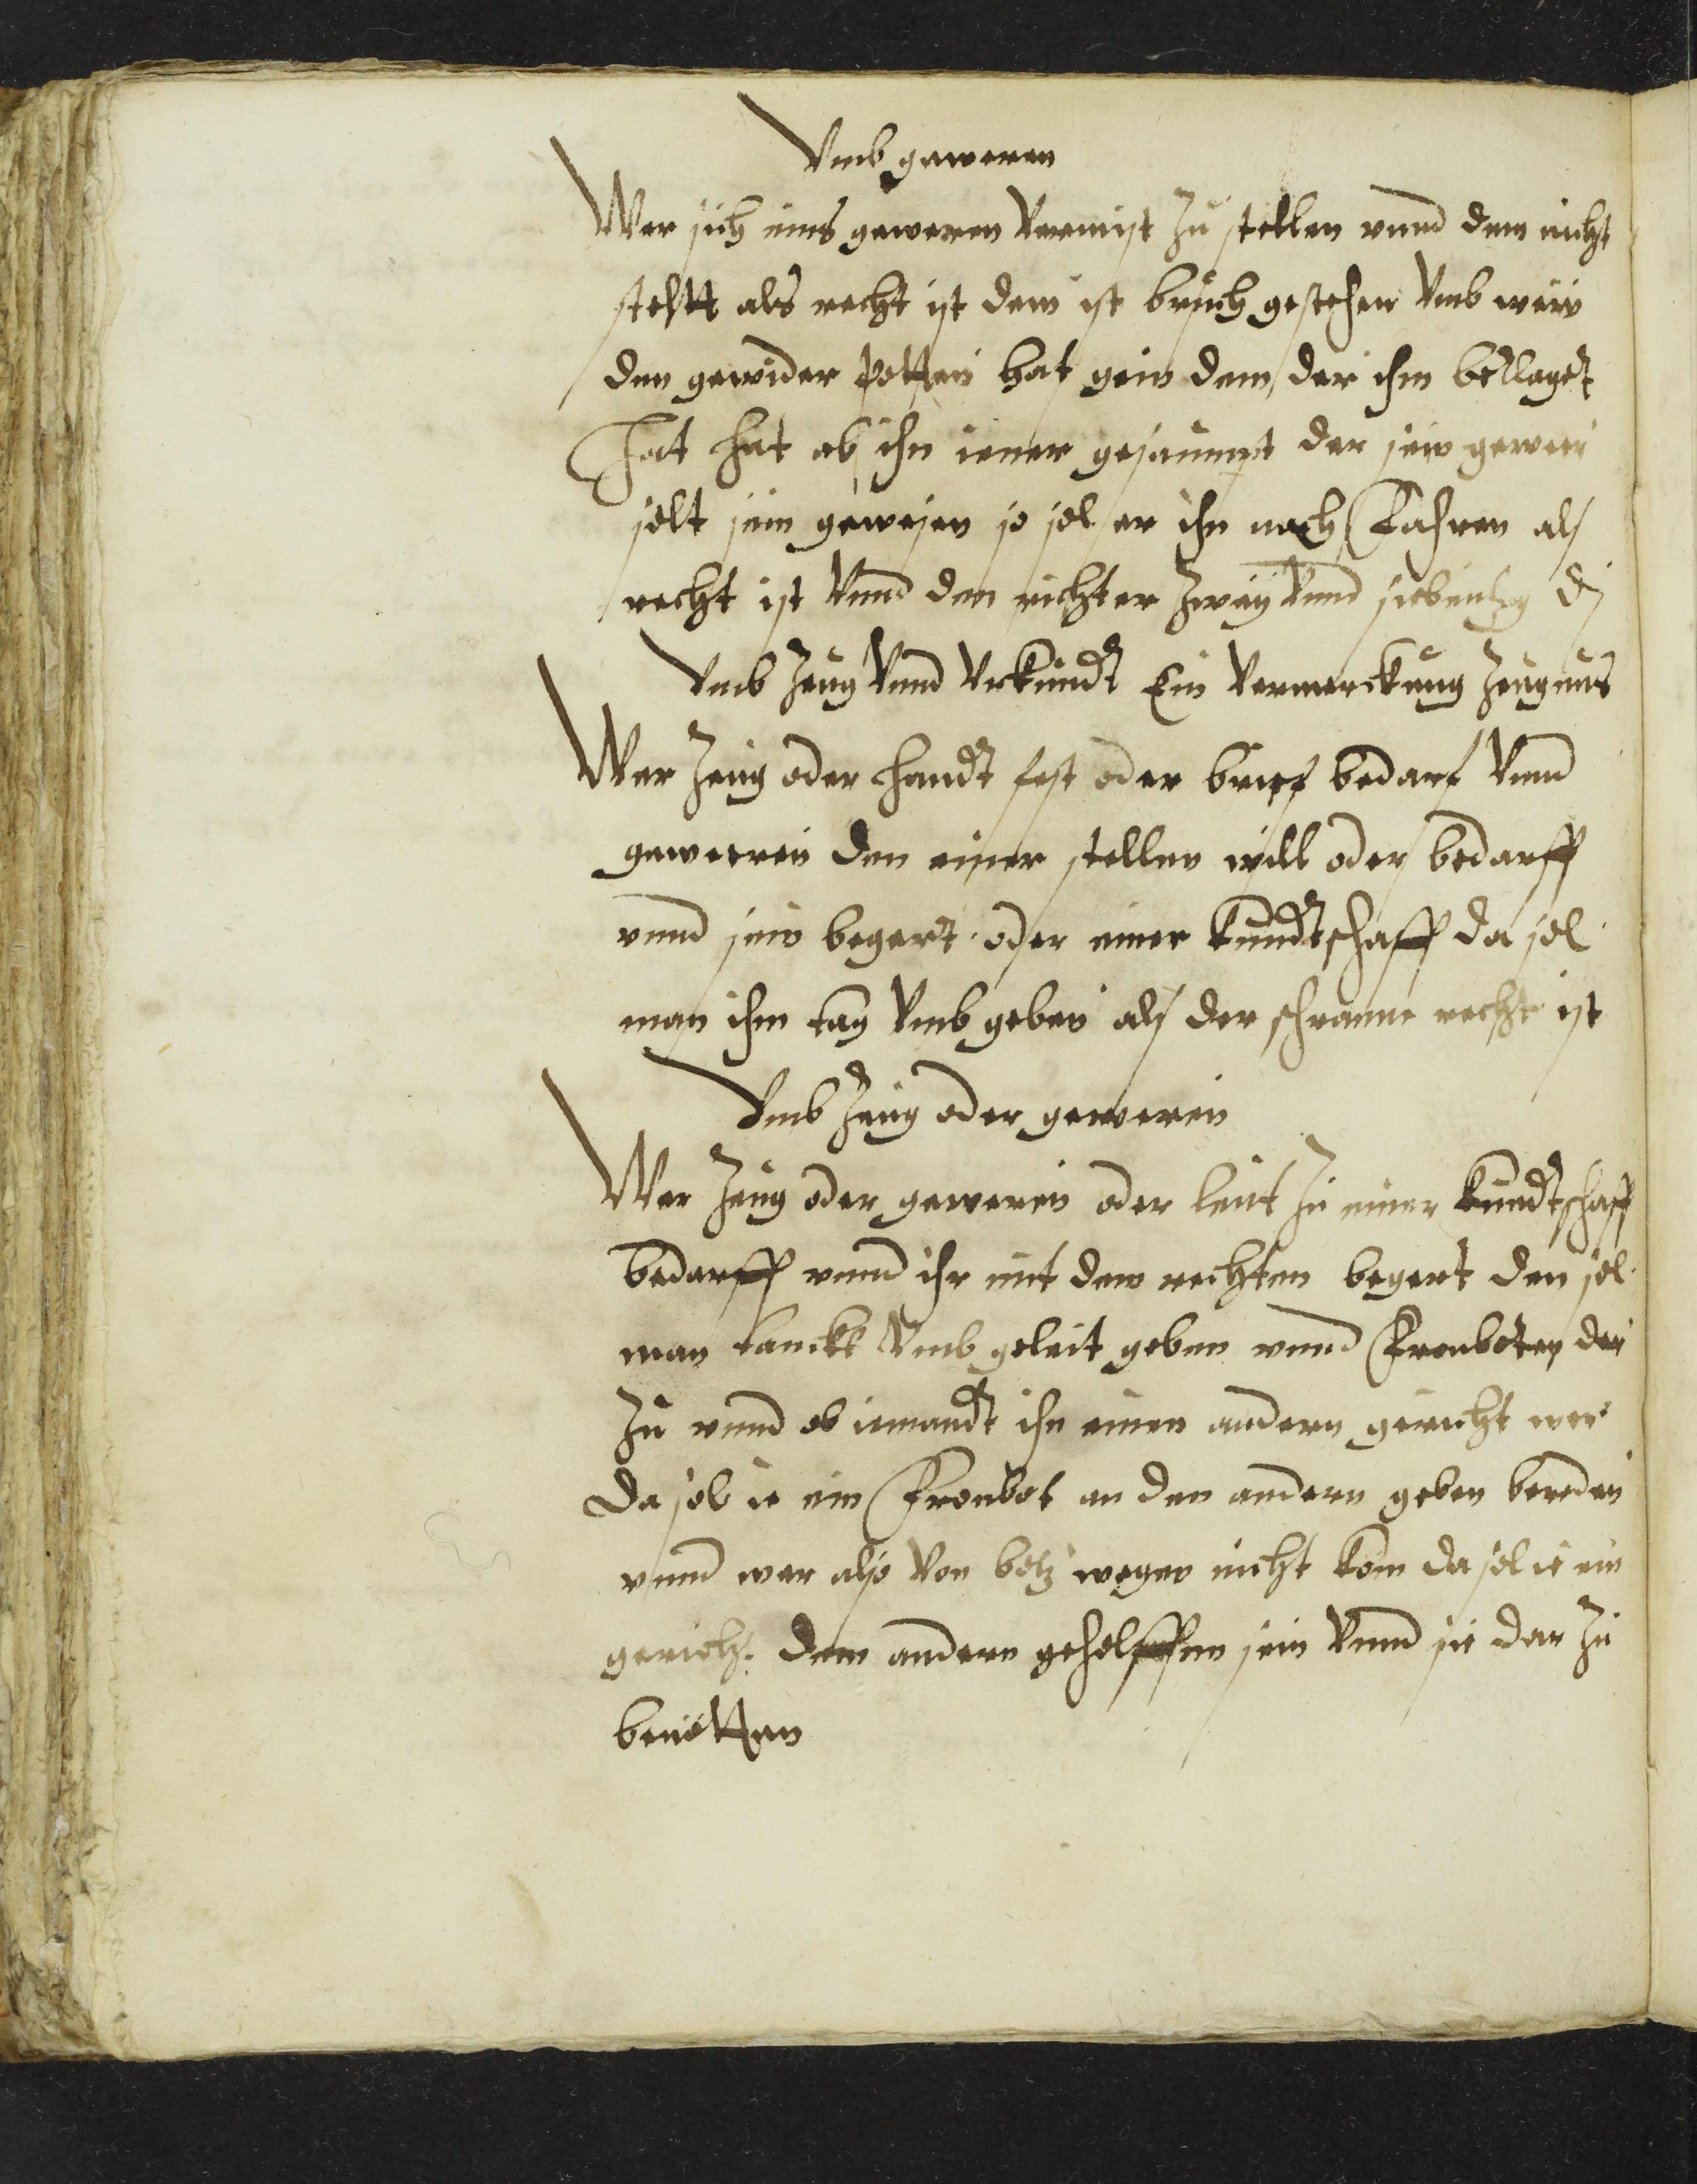 Vmb geweren
Wer sich eins geweren Vermist zu stellen vnnd dem nicht
stehtt als recht ist dem ist bruch gestehen Vmb wen
den gewider hat gein dem der ihn beklagt
Hat hat ab ihn iener gesaumpt der sein gewer
solt sein gewesen so sol er ihn nach Fahren als
recht ist Vnnd dem richter zwey Vnnd siebentzig d
Vmb zeug Vnnd Vrkundt Ein Vermerckung zeugnus
Wer zeug oder handt fest oder brieff bedarf Vnnd
geweren den einer stellen will oder bedarff
vnnd sein begert oder einer kundtschafft da sol
man ihm tag Vmb geben als der schranne recht ist
Vmb zeug oder geweren
Wer zeug oder geweren oder leut zu einer kundtschafft
bedarff vnnd ihr mit dem rechten begert den sol
man Vmb geleit geben vnnd Fronboten der
zu vnnd ob iemandt ihn einen andern gericht wer
da sol ie ein Fronbot an den andern geben
vnnd wer also von wegen nicht kom da sol ie ein
gericht dem andern geholffen sein Vnnd sie dar zu
benötten